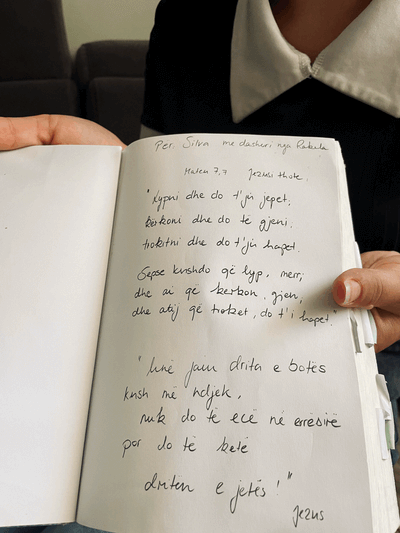 Për Silva me dashuri nga
Mateu 7,7 Jezusi thotë.
"Lypni dhe do t'ju jepet;
kërkoni dhe do të gjeni.
trokitni dhe do t'ju hapet.
Sepse kushdo që lyp, merr;
dhe ai që kërkon, gjen,
dhe atij që troket, do t'i hapet."
"Unë jam drita e botës
kush më ndjek,
nuk do të ecë në errësirë
por do të ketë
dritën e jetës!"
Jezus